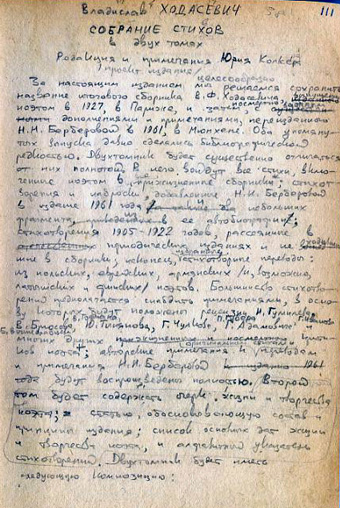 Владислав ХОДАСЕВИЧ
III
СОБРАНИЕ СТИХОВ
в двух томах
Редакция и примечания Юрия Колкера
Проект издания
целесообразно
За настоящим изданием мы решаемся сохранить
название итогового сборника В.Ф. Ходасевича,
поэтом в 1927, в Париже, и затем с
дополнениями и примечаниями, переизданного
Н.Н. Берберовой в 1961, в Мюнхене. Оба упомяну-
тых выпуска давно сделались библиографической
редкостью. Двухтомник будет существенно отличаться
от них полнотой. В него войдут все стихи, вклю-
ченные поэтом в прижизненные сборники; стихот-
ворения и наброски, добавленные Н.Н. Берберовой
в издание 1961 года; небольшие
фрагменты, в ее автобиографии;
стихотворения 1905-1922 годов, рассеянные в
периодических изданиях и не
в сборники; наконец, стихотворные переводы
из польских, еврейских, армянских /и, возможно,
латышских и финских/ поэтов. Большинство стихотво-
рений предполагается снабдить примечаниями, в осно-
ву которых будут положены рецензии Н. Гумилева,
В. Брюсова, Ю. Тынянова, Г. Чулкова, Г. Адамовича
многих других
ков поэта; авторские примечания к переводам
и примечания Н.Н. Берберовой 1961
года будут воспроизведены полностью. Второй
том будет содержать очерк жизни и творчества
поэта; статью, обосновывающую состав и
принципы издания; список основных дат жизни
и творчества поэта, и алфавитный указатель
стихотворений. Двухтомник будет иметь
следующую композицию: